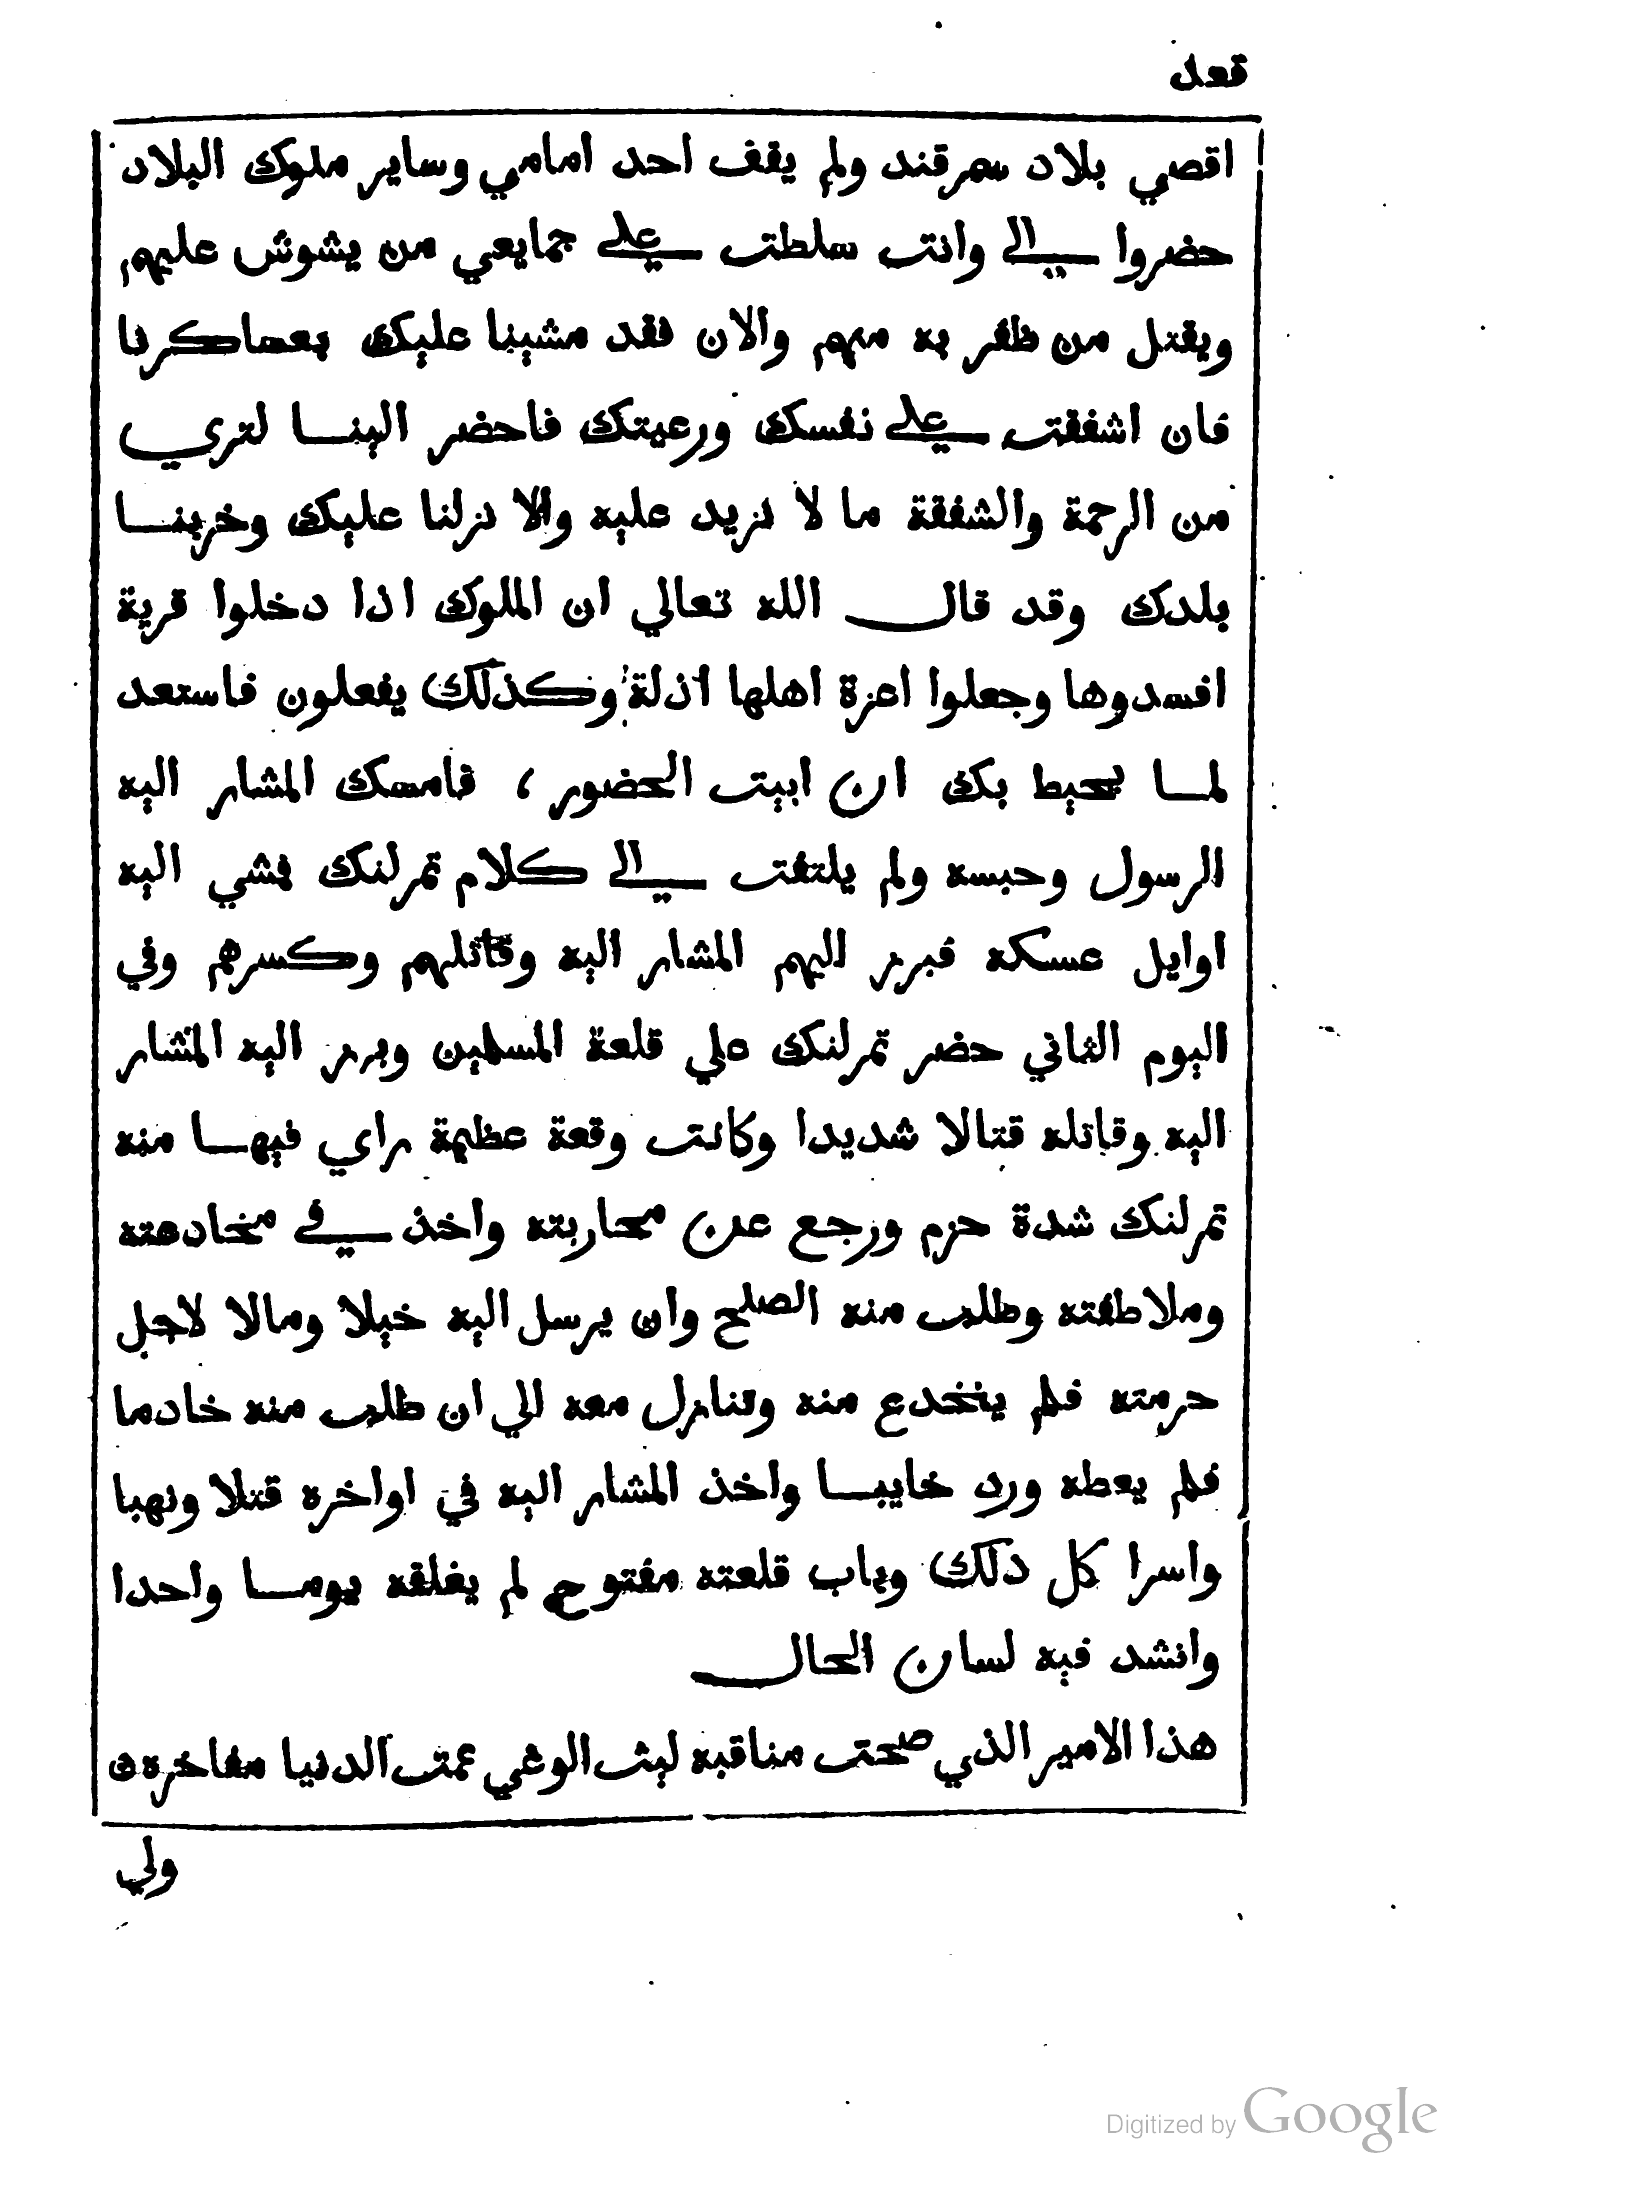 قعد
اقصي بلاد سمرقند ولم يقف احد امامي وساير ملوك البلاد
حضروا الي وانت سلطت علي جمايعي من يشوش عليهم
ويقتل من ظفر به منهم والان فقد مشينا عليك بعساكرنا
فان اشفقت علي نفسك ورعيتك فاحضر الينا لتري
من الرحمة والشفقة ما لا نزيد عليه والا نزلنا عليك وخربنا
بلدك وقد قال الله تعالي ان الملوك اذا دخلوا قرية
افسدوها وجعلوا اعزة اهلها اذلة وكذلك يفعلون فاستعد
لما يحيط بك ان ابيت الحضور ، فامسك المشار اليه
الرسول وحبسه ولم يلتفت الي كلام تمرلنك فمشي اليه
اوايل عسكره فبرز اليهم المشار اليه وقاتلهم وكسرهم وفي
اليوم الثاني حضر تمرلنك علي قلعة المسلمين وبرز اليه المشار
اليه وقاتله قتالا شديدا وكانت وقعة عظيمة راي فيها منه
تمرلنك شدة حزم ورجع عن محاربته واخذ في مخادعته
وملاطفته وطلب منه الصلح وان يرسل اليه خيلا ومالا لاجل
حرمته فلم ينخدع منه وتنازل معه الي ان طلب منه خادما
فلم يعطه ورد خايبا واخذ المشار اليه في اواخره قتلا ونهبا
واسرا كل دلك وباب قلعته مفتوح لم يغلقه يوما واحدا
وانشد فيه لسان الحال
هذا الامير الذي صحت مناقبه ليث الوغي عمت الدنيا مفاخره ه
ولي
Digitized by Google